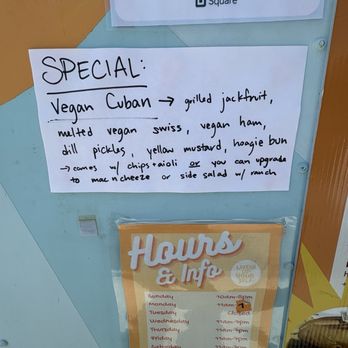 Square
SPECIAL:
Vegan Cuban → grilled jackfruit,
melted vegan swiss, vegan ham,
dill pickles, yellow mustard, hoagie bun
→ comes w/ chips + aioli or you can upgrade
to mac n cheeze or side salad w/ ranch
Hours
& Info
Sunday
Monday
Tuesday Closed
Wednesday
Thursday
Friday
Saturday